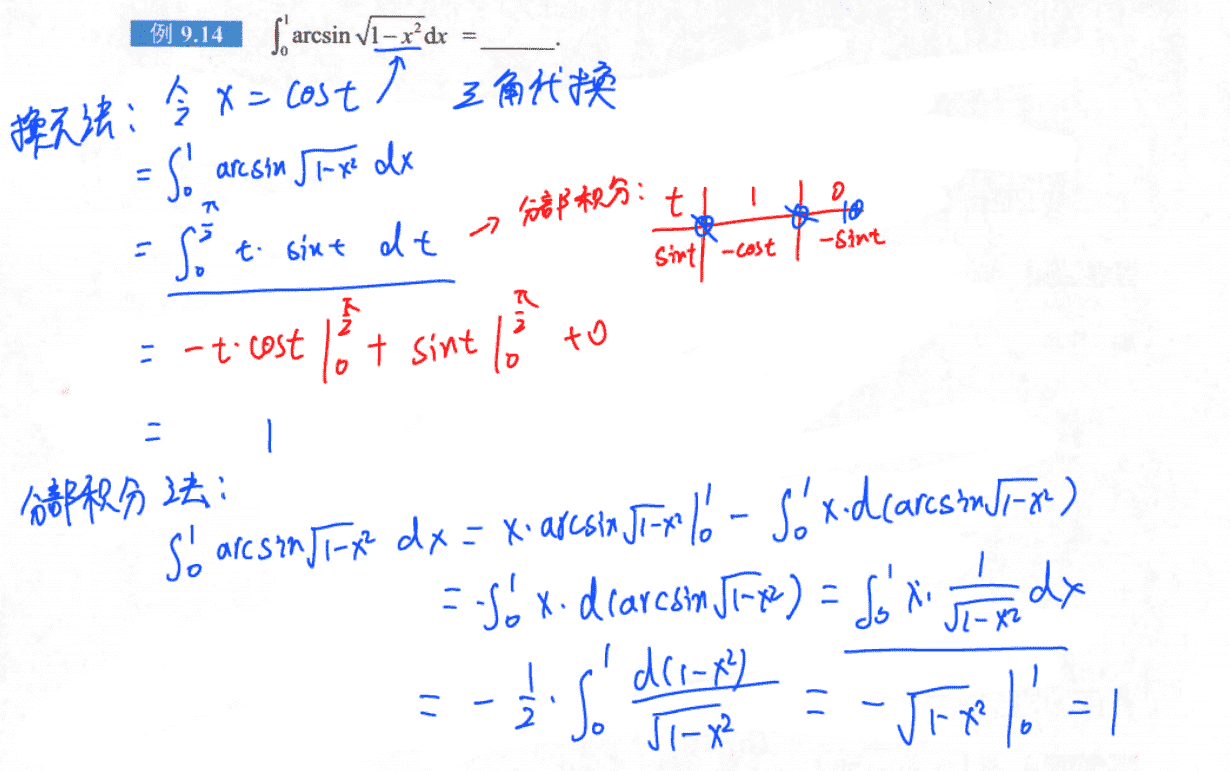 例 9.14 ∫₀¹ arcsin √(1-x²) dx = ______.
换元法: 令 x = cost 三角代换
= ∫₀¹ arcsin √(1-x²) dx
= ∫₀^(π/2) t· sint dt → 分部积分: t | 1 | 0
sint | -cost | -sint
= -t·cost |₀^(π/2) + sint |₀^(π/2) +0
= 1
分部积分法:
∫₀¹ arcsin√(1-x²) dx = x·arcsin√(1-x²) |₀¹ - ∫₀¹ x·d(arcsin√(1-x²))
= -∫₀¹ x·d(arcsin√(1-x²)) = ∫₀¹ x· 1/√(1-x²) dx
= -1/2 · ∫₀¹ d(1-x²)/√(1-x²) = -√(1-x²) |₀¹ = 1